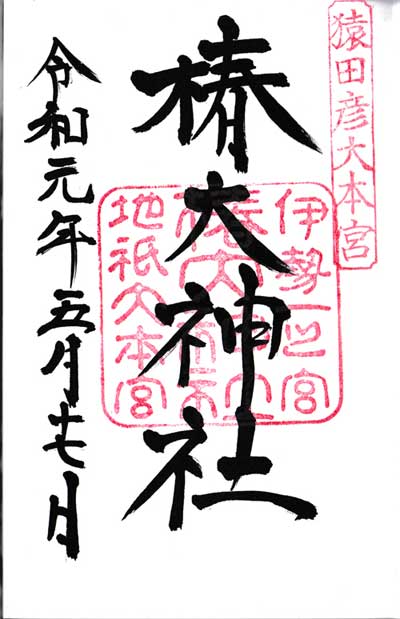 猿田彦大本宮
椿大神社
伊勢一之宮
椿大神社
地祇大本宮
令和元年五月十七日